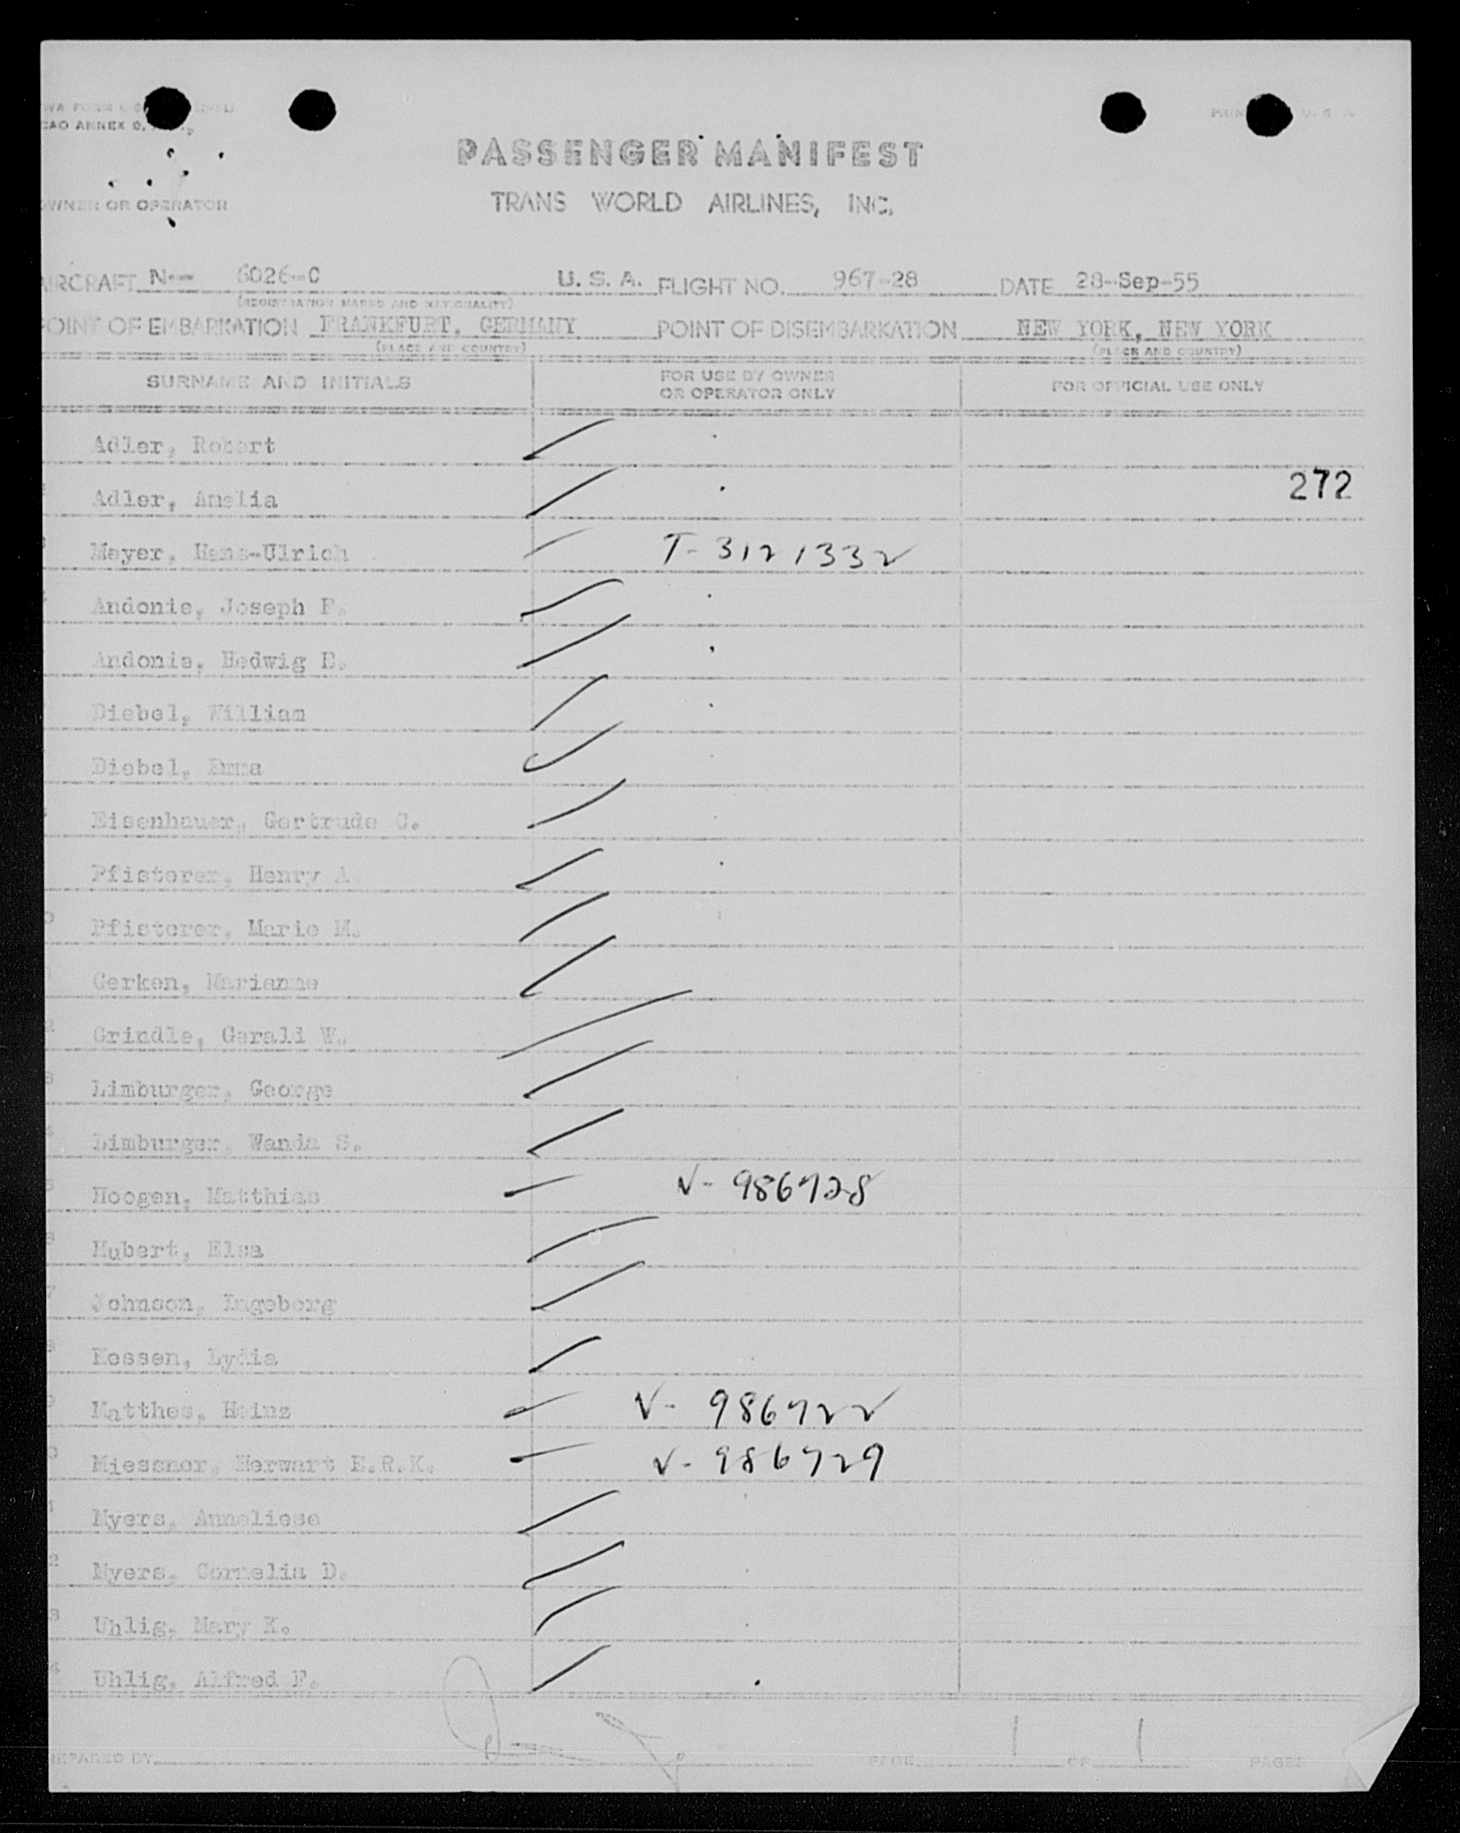 CAO ANNEX 9,
PASSENGER MANIFEST
OWNER OR OPERATOR
TRANS WORLD AIRLINES, INC.
AIRCRAFT N-- 6026-C U. S. A. FLIGHT NO. 967-28 DATE 28-Sep-55
(REGISTRATION MARKS AND NATIONALITY)
POINT OF EMBARKATION FRANKFURT, GERMANY POINT OF DISEMBARKATION NEW YORK, NEW YORK
(PLACE AND COUNTRY) (PLACE AND COUNTRY)
SURNAME AND INITIALS FOR USE BY OWNER OR OPERATOR ONLY FOR OFFICIAL USE ONLY
Adler, Robert
272
Adler, Amelia
Mayer, Hans-Ulrich T-3121332
Andonie, Joseph F.
Andonie, Hedwig E.
Diebel, William
Diebel, Emma
Eisenhauer, Gertrude C.
Pfisterer, Henry A.
10 Pfisterer, Marie M.
Gerken, Marianne
2 Grindle, Gerald W.
3 Limburger, George
4 Limburger, Wanda S.
5 Hoogen, Matthias V-986728
6 Hubert, Elsa
7 Johnson, Ingeborg
8 Kossen, Lydia
9 Matthes, Heinz V-986722
0 Miessner, Herwart E.R.K. V-986729
1 Myers, Anneliese
2 Myers, Cornelia D.
3 Uhlig, Mary K.
4 Uhlig, Alfred F.
PREPARED BY PAGE 1 OF 1 PAGES